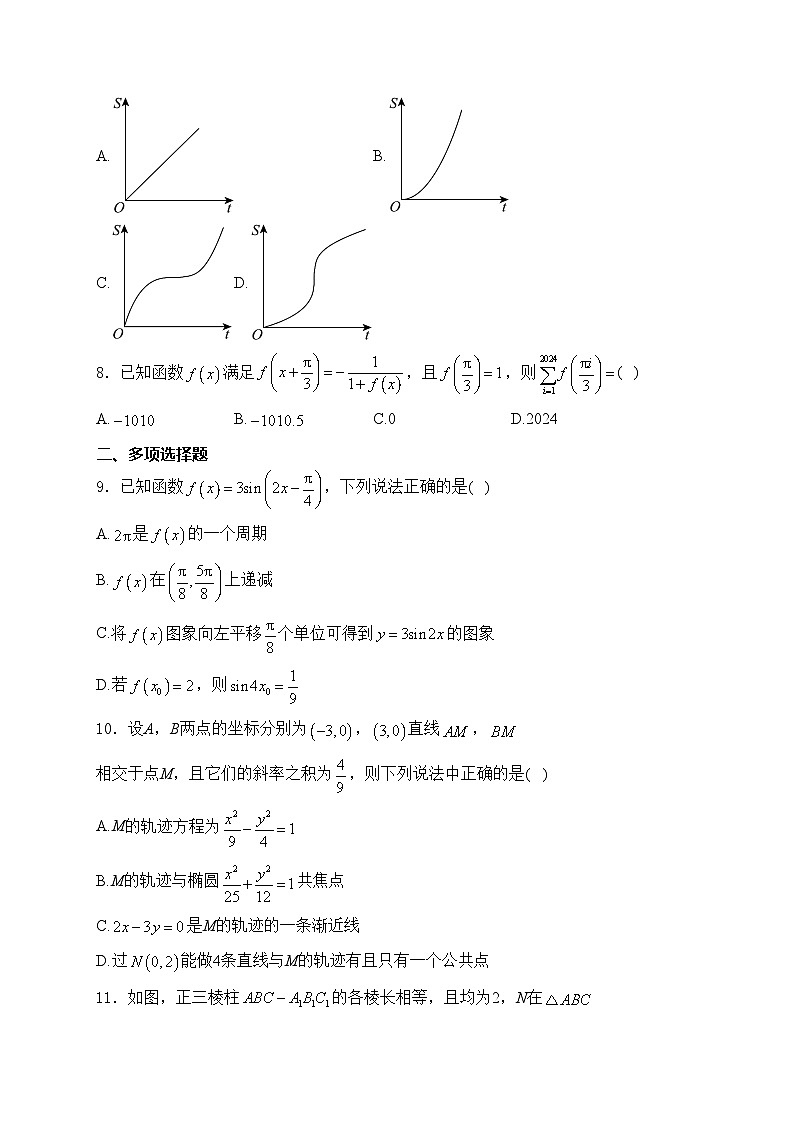 S S
A. B.
O t O t
S S
C. D.
O t O t
8．已知函数 f(x) 满足 f(x+π/3)=-1/(1+f(x))，且 f(π/3)=1，则 ∑_{i=1}^{2024} f(πi/3)=( )
A. −1010 B. −1010.5 C.0 D.2024
二、多项选择题
9．已知函数 f(x)=3sin(2x−π/4)，下列说法正确的是( )
A. 2π是 f(x) 的一个周期
B. f(x) 在 (π/8, 5π/8) 上递减
C.将 f(x) 图象向左平移 π/8 个单位可得到 y=3sin2x 的图象
D.若 f(x₀)=2，则 sin4x₀=1/9
10．设A，B两点的坐标分别为 (−3,0)，(3,0) 直线 AM，BM
相交于点M，且它们的斜率之积为 4/9，则下列说法中正确的是( )
A.M的轨迹方程为 x²/9−y²/4=1
B.M的轨迹与椭圆 x²/25+y²/12=1 共焦点
C. 2x−3y=0 是M的轨迹的一条渐近线
D.过 N(0,2) 能做4条直线与M的轨迹有且只有一个公共点
11．如图，正三棱柱 ABC−A₁B₁C₁ 的各棱长相等，且均为2，N在 △ABC